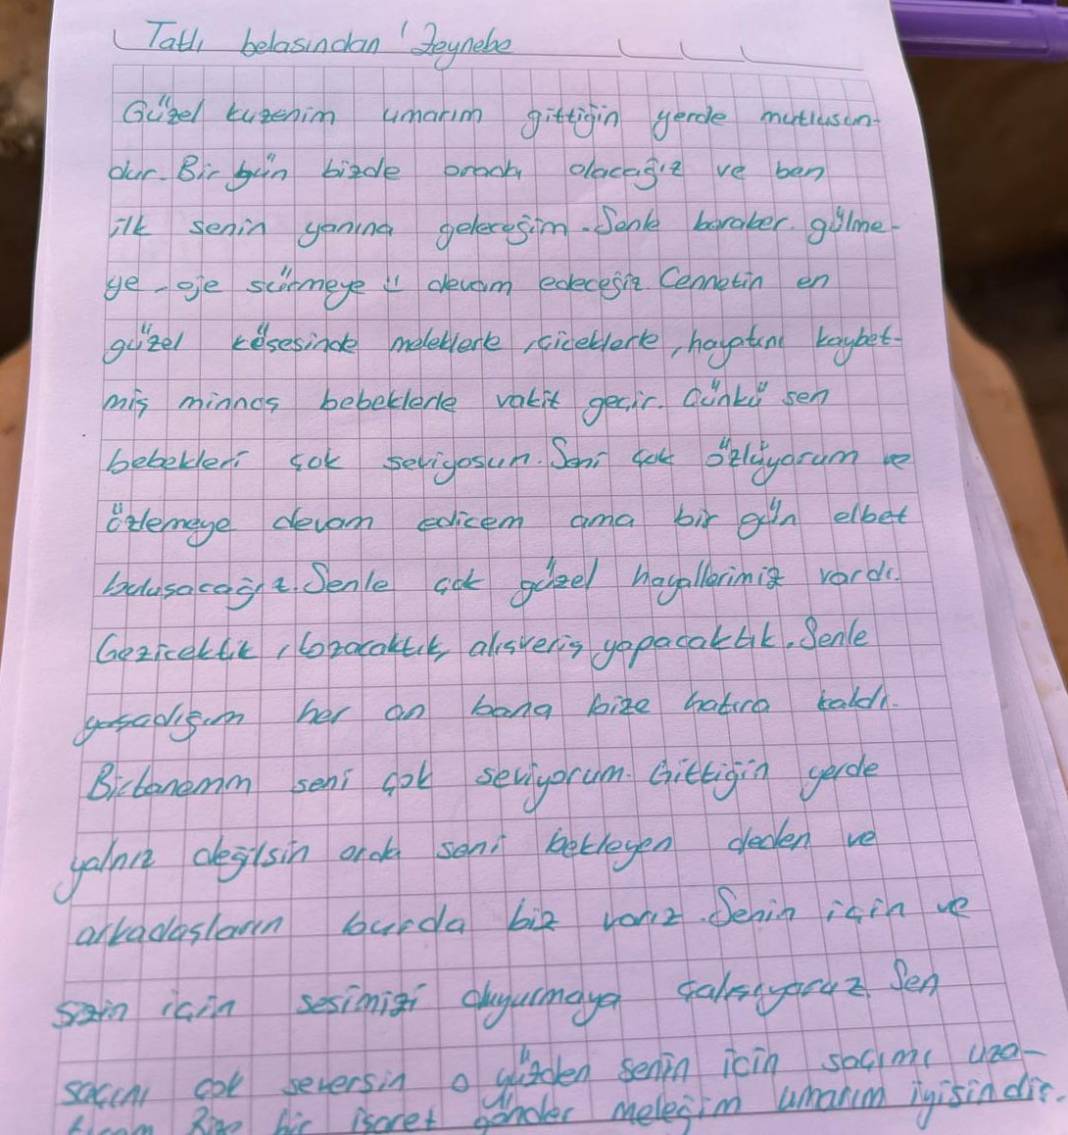 Tatlı belasından 'Zeynebe
Güzel kuzenim umarım gittiğin yerde mutlusun-
dur. Bir gün bizde orada olacağız ve ben
ilk senin yanına geleceğim. Senle beraber gülme-
ye, oje sürmeye devam edeceğiz. Cennetin en
güzel köşesinde meleklerle, çiceklerle, hayatını kaybet-
miş minnoş bebeklerle vakit geçir. Çünkü sen
bebekleri çok seviyosun. Seni çok özlüyorum ve
özlemeye devam edicem ama bir gün elbet
bulusacağız. Senle çok güzel hayallerimiz vardı.
Gezicektik, tozacaktık, alışveriş yapacaktık. Senle
yaşadığım her an bana bize hatıra kaldı.
Bictanemm seni çok seviyorum. Gittiğin yerde
yalnız değilsin orda seni bekleyen deden ve
arkadasların burda biz varız. Senin için ve
sizin için sesimizi duyurmaya çalışıyoruz. Sen
saçını çok seversin o yüzden senin icin saçımı uza-
tıcam Bize bir işaret gönder meleğim umarım iyisindir.